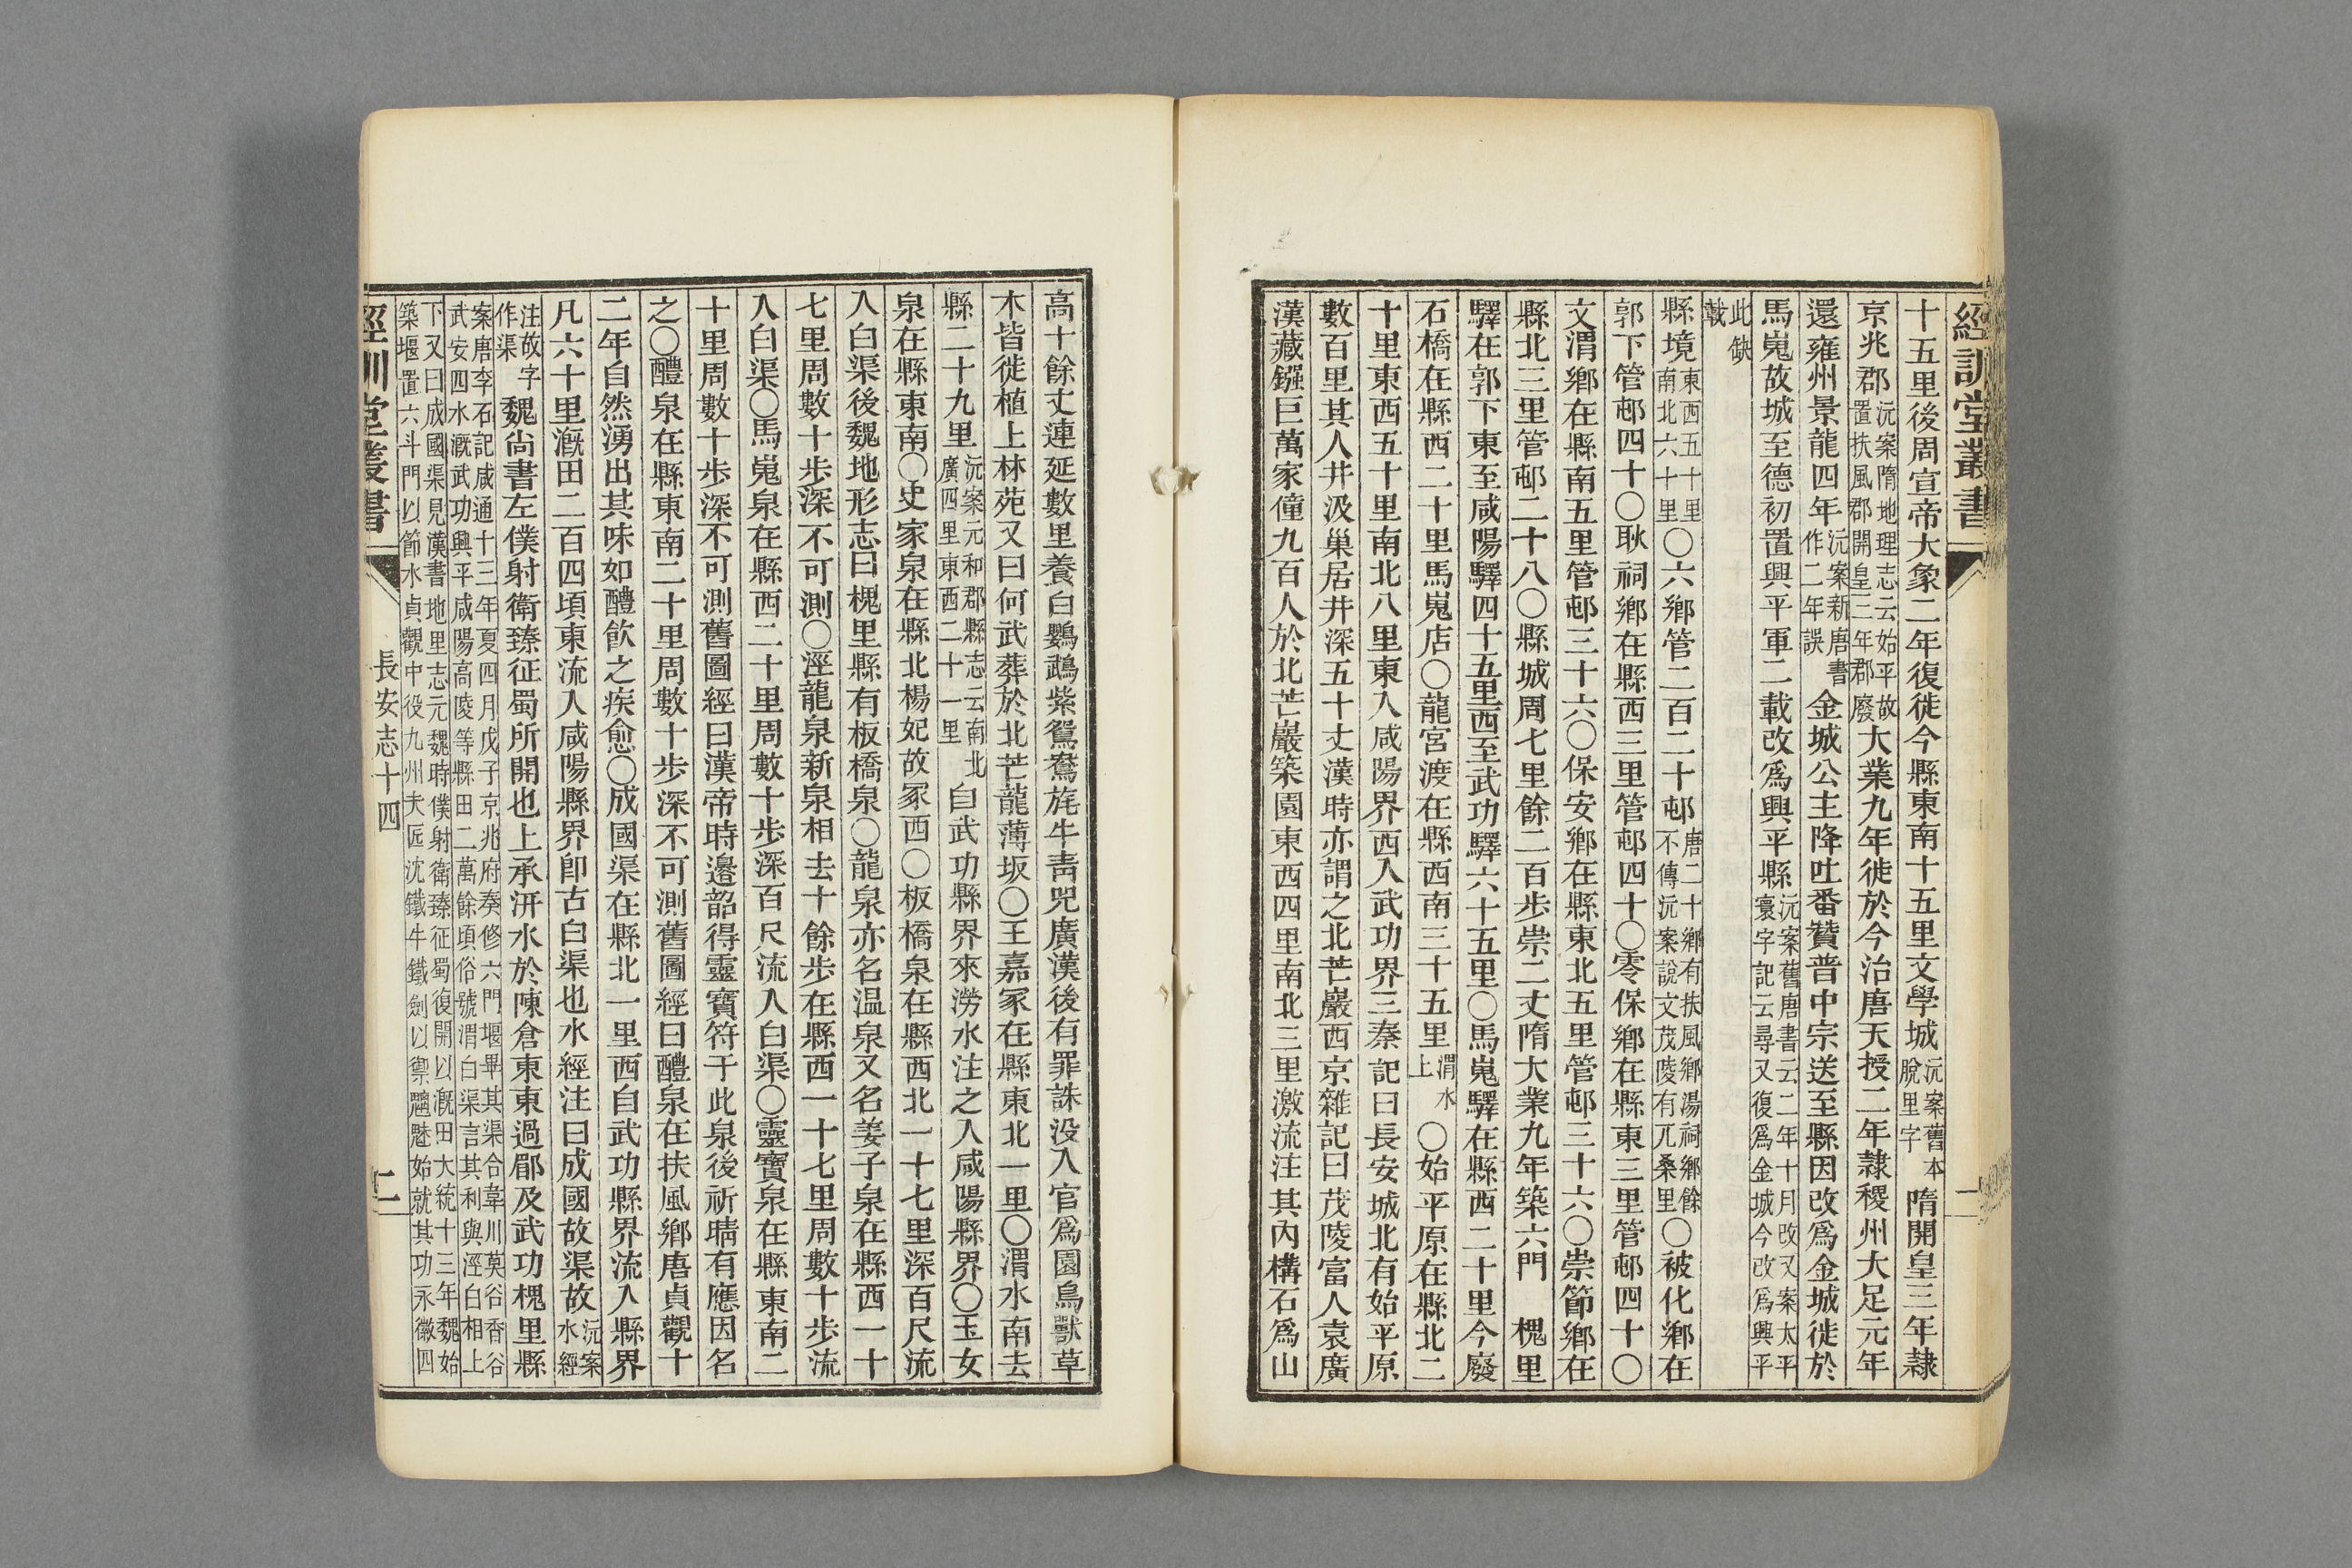 經訓堂叢書
二
十五里後周宣帝大象二年復徙今縣東南十五里文學城沅案舊本脫里字隋開皇三年隸
京兆郡沅案隋地理志云始平故置扶風郡開皇三年郡廢大業九年徙於今治唐天授二年隸稷州大足元年
還雍州景龍四年沅案新唐書作二年誤金城公主降吐番贊普中宗送至縣因改爲金城徙於
馬嵬故城至德初置興平軍二載改爲興平縣沅案舊唐書云二年十月改又案太平寰宇記云尋又復爲金城今改爲興平
此缺載
縣境東西五十里南北六十里〇六鄉管二百二十邨唐二十鄉有扶風鄉湯祠鄉餘不傳沅案說文茂陵有兀桑里〇被化鄉在
郭下管邨四十〇耿祠鄉在縣西三里管邨四十〇零保鄉在縣東三里管邨四十〇
文渭鄉在縣南五里管邨三十六〇保安鄉在縣東北五里管邨三十六〇崇節鄉在
縣北三里管邨二十八〇縣城周七里餘二百步崇二丈隋大業九年築六門　槐里
驛在郭下東至咸陽驛四十五里西至武功驛六十五里〇馬嵬驛在縣西二十里今廢
石橋在縣西二十里馬嵬店〇龍宮渡在縣西南三十五里渭水上〇始平原在縣北二
十里東西五十里南北八里東入咸陽界西入武功界三秦記曰長安城北有始平原
數百里其人井汲巢居井深五十丈漢時亦謂之北芒巖西京雜記曰茂陵富人袁廣
漢藏鏹巨萬家僮九百人於北芒巖築園東西四里南北三里激流注其內構石爲山
高十餘丈連延數里養白鸚鵡紫鴛鴦旄牛靑兕廣漢後有罪誅没入官爲園鳥獸草
木皆徙植上林苑又曰何武葬於北芒龍薄坂〇王嘉冢在縣東北一里〇渭水南去
縣二十九里沅案元和郡縣志云南北廣四里東西二十一里自武功縣界來澇水注之入咸陽縣界〇玉女
泉在縣東南〇史家泉在縣北楊妃故冢西〇板橋泉在縣西北一十七里深百尺流
入白渠後魏地形志曰槐里縣有板橋泉〇龍泉亦名温泉又名姜子泉在縣西一十
七里周數十步深不可測〇涇龍泉新泉相去十餘步在縣西一十七里周數十步流
入白渠〇馬嵬泉在縣西二十里周數十步深百尺流入白渠〇靈寶泉在縣東南二
十里周數十步深不可測舊圖經曰漢帝時邉韶得靈寶符于此泉後祈晴有應因名
之〇醴泉在縣東南二十里周數十步深不可測舊圖經曰醴泉在扶風鄉唐貞觀十
二年自然湧出其味如醴飲之疾愈〇成國渠在縣北一里西自武功縣界流入縣界
凡六十里溉田二百四頃東流入咸陽縣界卽古白渠也水經注曰成國故渠故沅案水經
注故字作渠魏尚書左僕射衛臻征蜀所開也上承汧水於陳倉東東過郿及武功槐里縣
案唐李石記咸通十三年夏四月戊子京兆府奏修六門堰畢其渠合韋川莫谷香谷武安四水溉武功興平咸陽高陵等縣田二萬餘頃俗號渭白渠言其利與涇白相上
下又曰成國渠見漢書地里志元魏時僕射衛臻征蜀復開以溉田大統十三年魏始築堰置六斗門以節水貞觀中役九州夫匠沈鐵牛鐵劍以禦魑魅始就其功永徽四
經訓堂叢書
長安志十四
二